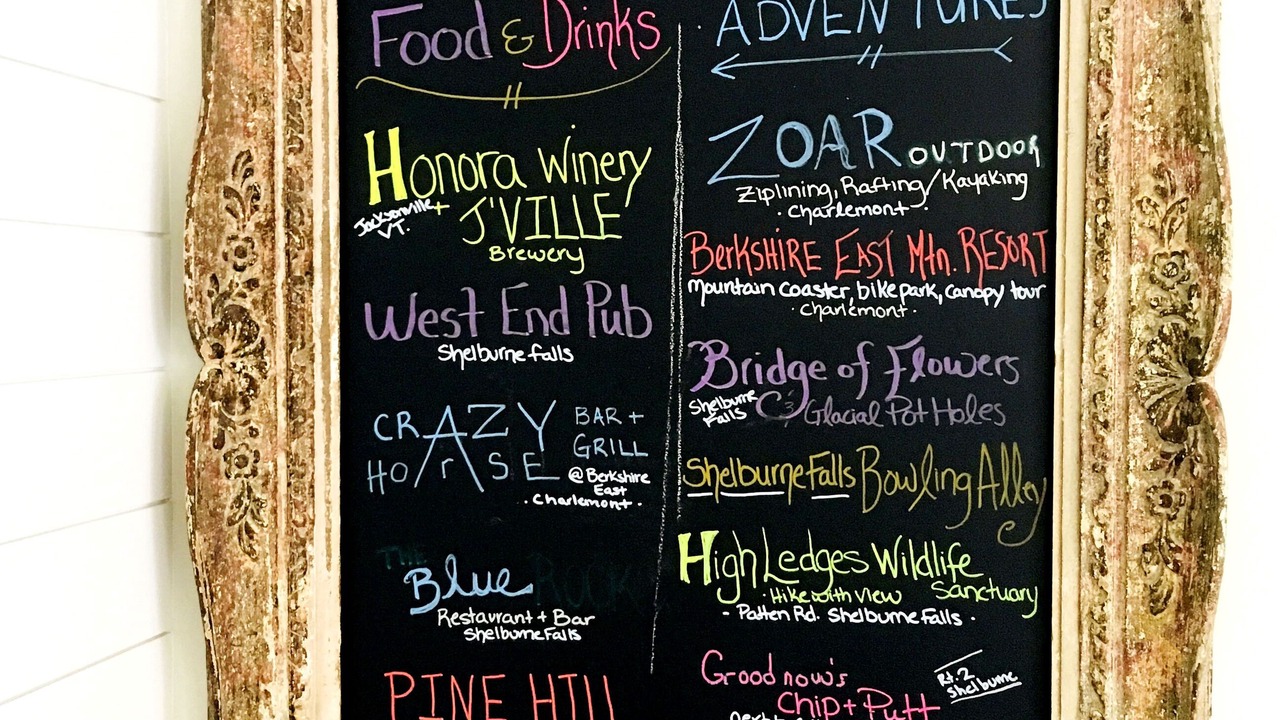 Food & Drinks
Honora Winery
Jacksonville VT.
+ J'VILLE
Brewery
West End Pub
Shelburne Falls
CRAZY HOrSE
BAR +
GRILL
@ Berkshire
East
· Charlemont ·
THE
Blue ROCK
Restaurant + Bar
Shelburne Falls
PINE HILL
ADVENTURES
ZOAR OUTDOOR
Ziplining, Rafting/Kayaking
· Charlemont ·
BERKSHIRE EAST Mtn. RESORT
Mountain coaster, bike park, canopy tour
· Charlemont ·
Bridge of Flowers
Shelburne Falls
& Glacial Pot Holes
Shelburne Falls Bowling Alley
High Ledges Wildlife
· Hike with view Sanctuary
- Patten Rd. Shelburne Falls ·
Goodnow's
Chip + Putt
Rt. 2
Shelburne